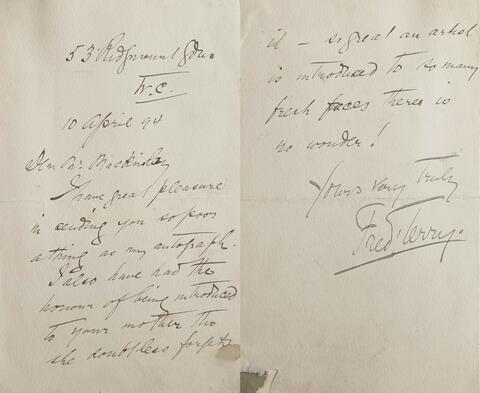 53 Ridgmount Gdns.
W.C.
10 April 94
Dear Mr. Mackinlay
I have great pleasure
in sending you so poor
a thing as my autograph.
I also have had the
honour of being introduced
to your mother tho
she doubtless forgets
it – so great an artist
is introduced to so many
fresh faces there is
no wonder!
Yours very truly
Fred Terry.